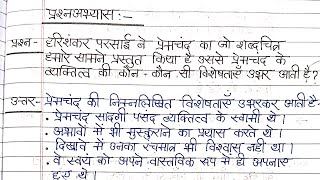 प्रश्नअभ्यास:-
प्रश्न- हरिशंकर परसाई ने प्रेमचंद का जो शब्दचित्र
हमारे सामने प्रस्तुत किया है उससे प्रेमचंद के
व्यक्तित्व की कौन-कौन सी विशेषताएँ उभर आती है?
उत्तर- प्रेमचंद की निम्नलिखित विशेषताएँ उभरकर आती है-
• प्रेमचंद सादगी पसंद व्यक्तित्व के स्वामी थे।
• अभावों में भी मुस्कुराने का प्रयास करते थे।
• दिखावे में उनका रंचमात्र भी विश्वास नहीं था।
• वे स्वयं को अपने वास्तविक रूप में ही अपनाए
हुए थे।